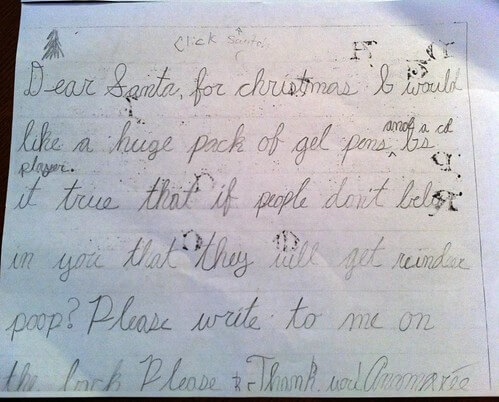 Click Santa
Dear Santa, for christmas I would
like a huge pack of gel pens and a cd
player. Is
it true that if people don't beleve
in you that they will get reindeer
poop? Please write to me on
the back Please Thank you! Annmarie